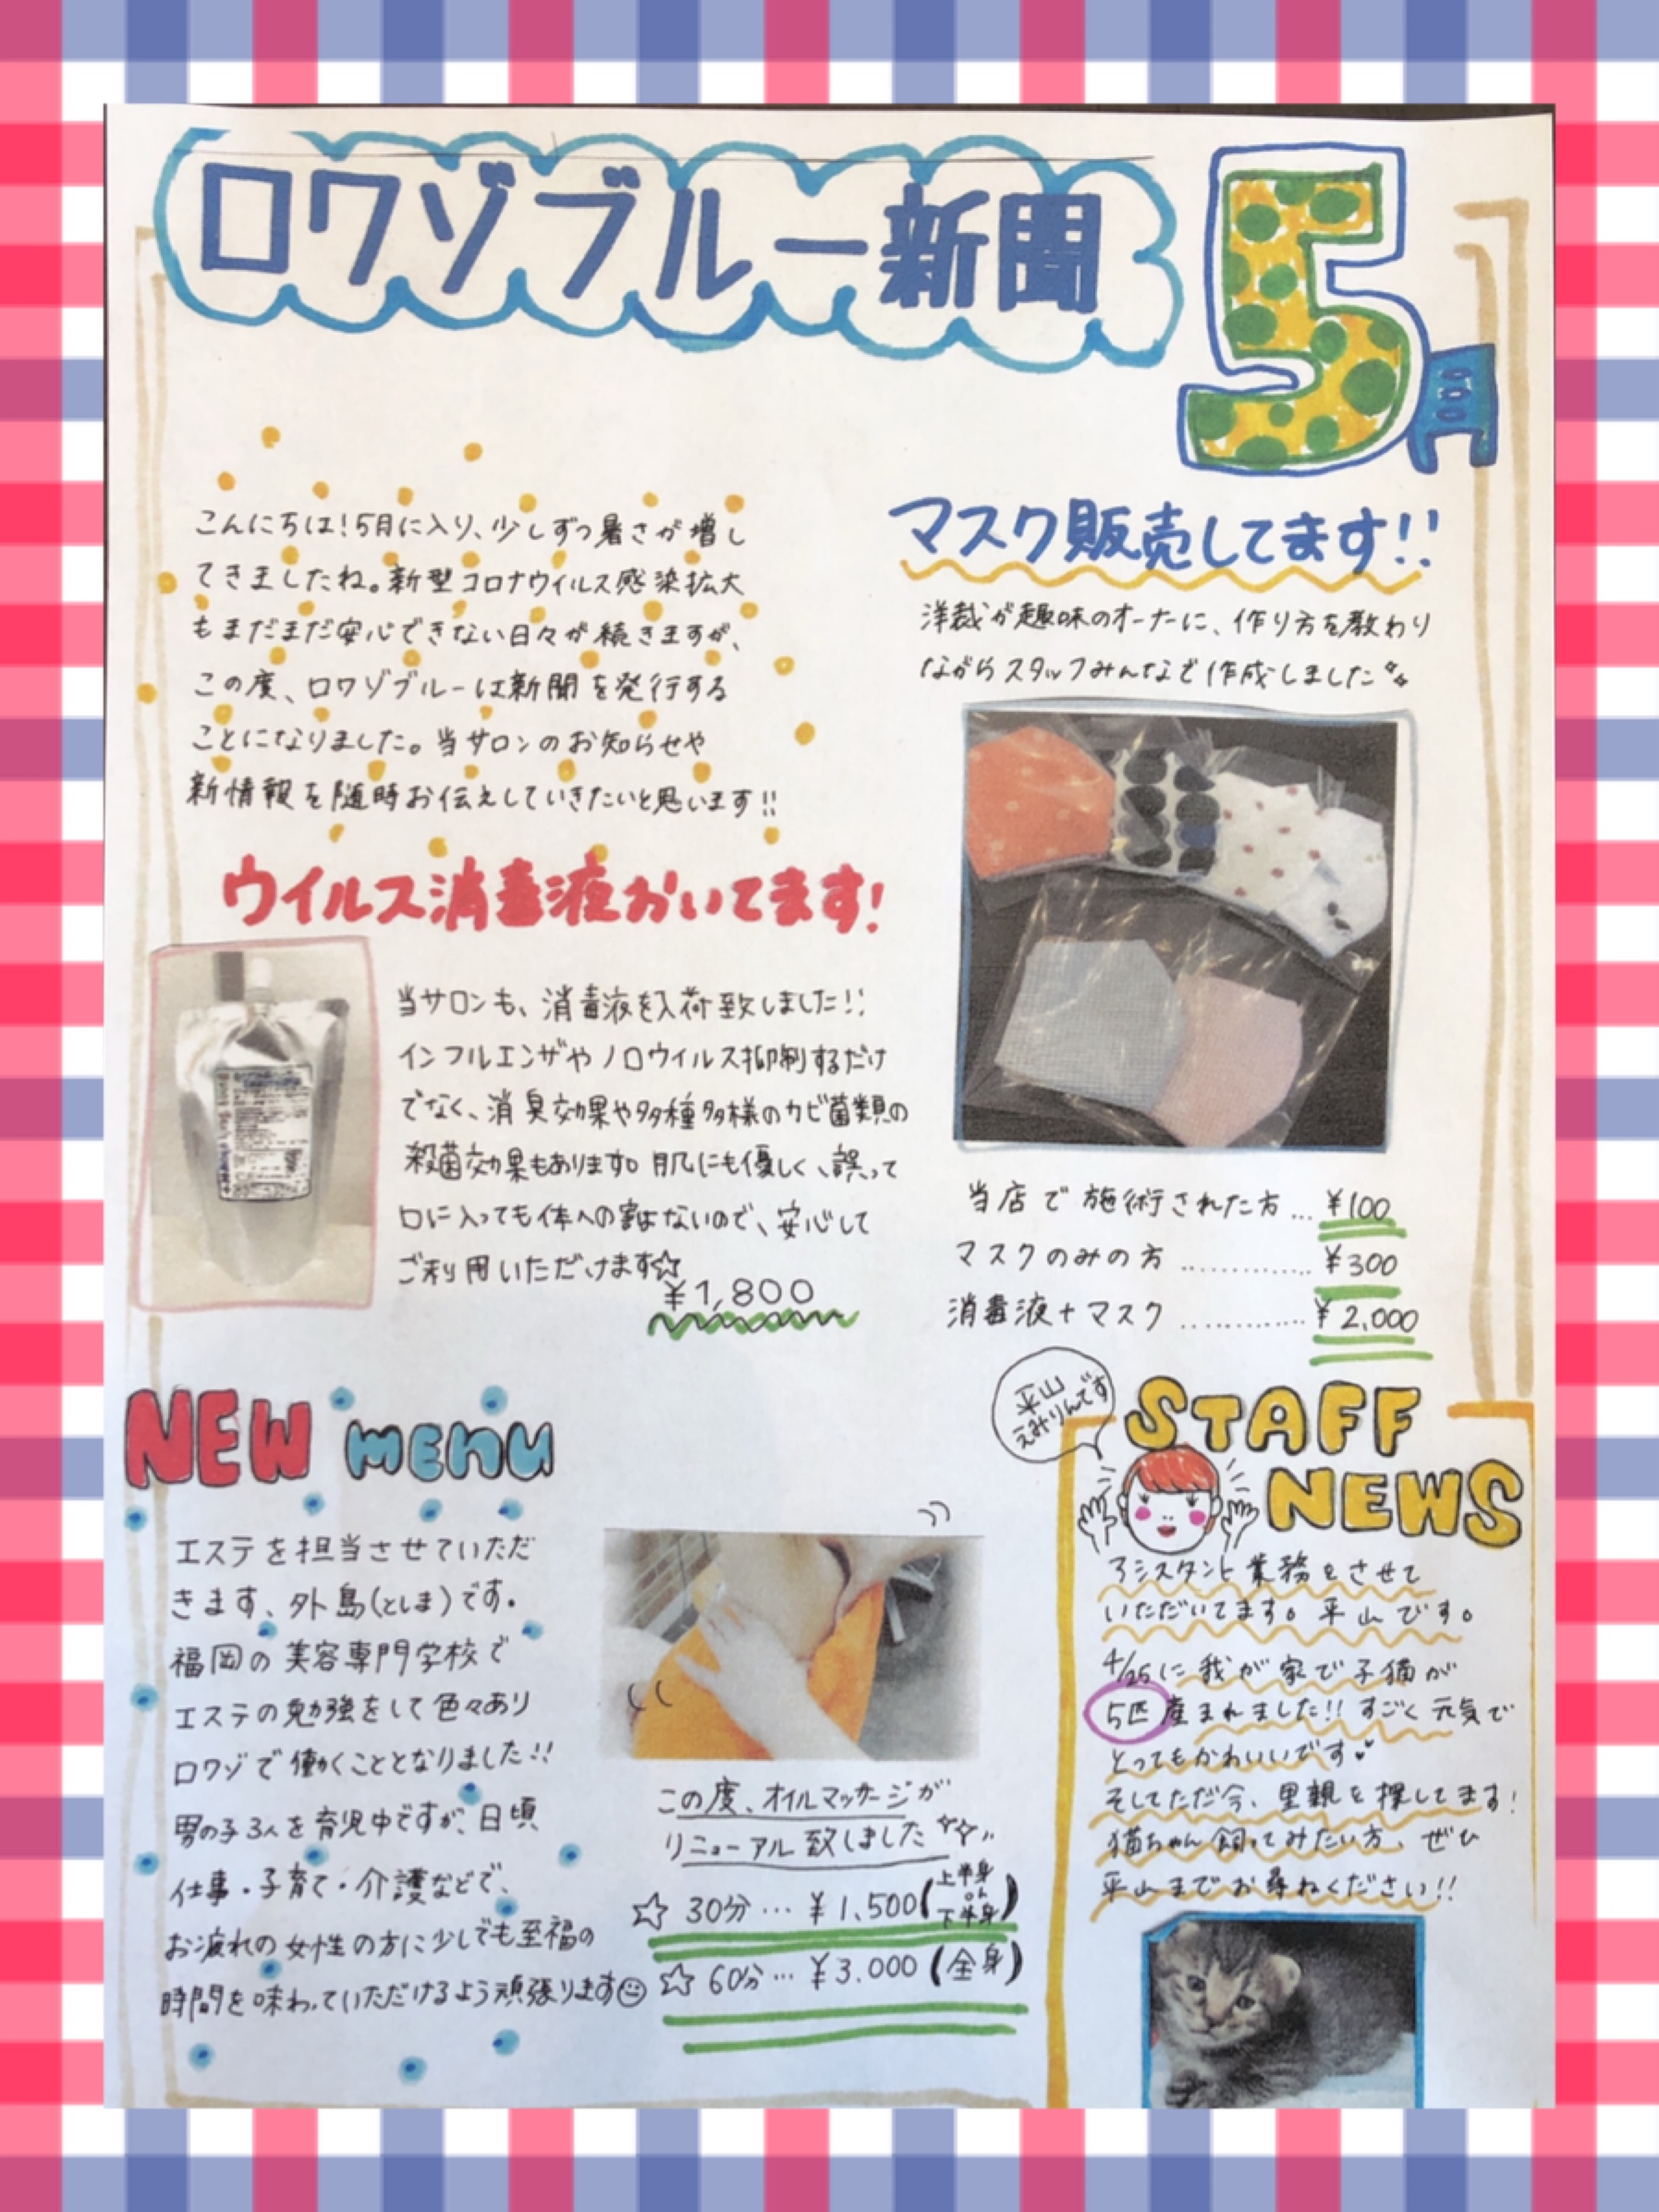 ロワゾブルー新聞
5月
こんにちは！5月に入り、少しずつ暑さが増し
てきましたね。新型コロナウイルス感染拡大
もまだまだ安心できない日々が続きますが、
この度、ロワゾブルーは新聞を発行する
ことになりました。当サロンのお知らせや
新情報を随時お伝えしていきたいと思います!!
ウイルス消毒液おいてます!
当サロンも、消毒液を入荷致しました!!
インフルエンザやノロウイルス抑制するだけ
でなく、消臭効果や多種多様のカビ菌類の
殺菌効果もあります。肌にも優しく、誤って
口に入っても体への害はないので、安心して
ご利用いただけます☆
¥1,800
マスク販売してます!!
洋裁が趣味のオーナーに、作り方を教わり
ながらスタッフみんなで作成しました
当店で施術された方…¥100
マスクのみの方…………¥300
消毒液+マスク…………¥2,000
NEW MENU
エステを担当させていただ
きます、外島(としま)です。
福岡の美容専門学校で
エステの勉強をして色々あり
ロワゾで働くこととなりました!!
男の子3人を育児中ですが、日頃、
仕事・子育て・介護などで、
お疲れの女性の方に少しでも至福の
時間を味わっていただけるよう頑張ります
この度、オイルマッサージが
リニューアル致しました
☆ 30分…¥1,500(上半身or下半身)
☆ 60分…¥3.000(全身)
平山
えみりんです
STAFF
NEWS
アシスタント業務をさせて
いただいてます。平山です。
4/25に我が家で子猫が
5匹産まれました!!すごく元気で
とってもかわいいです
そしてただ今、里親を探してます!
猫ちゃん飼ってみたい方、ぜひ
平山までお尋ねください!!